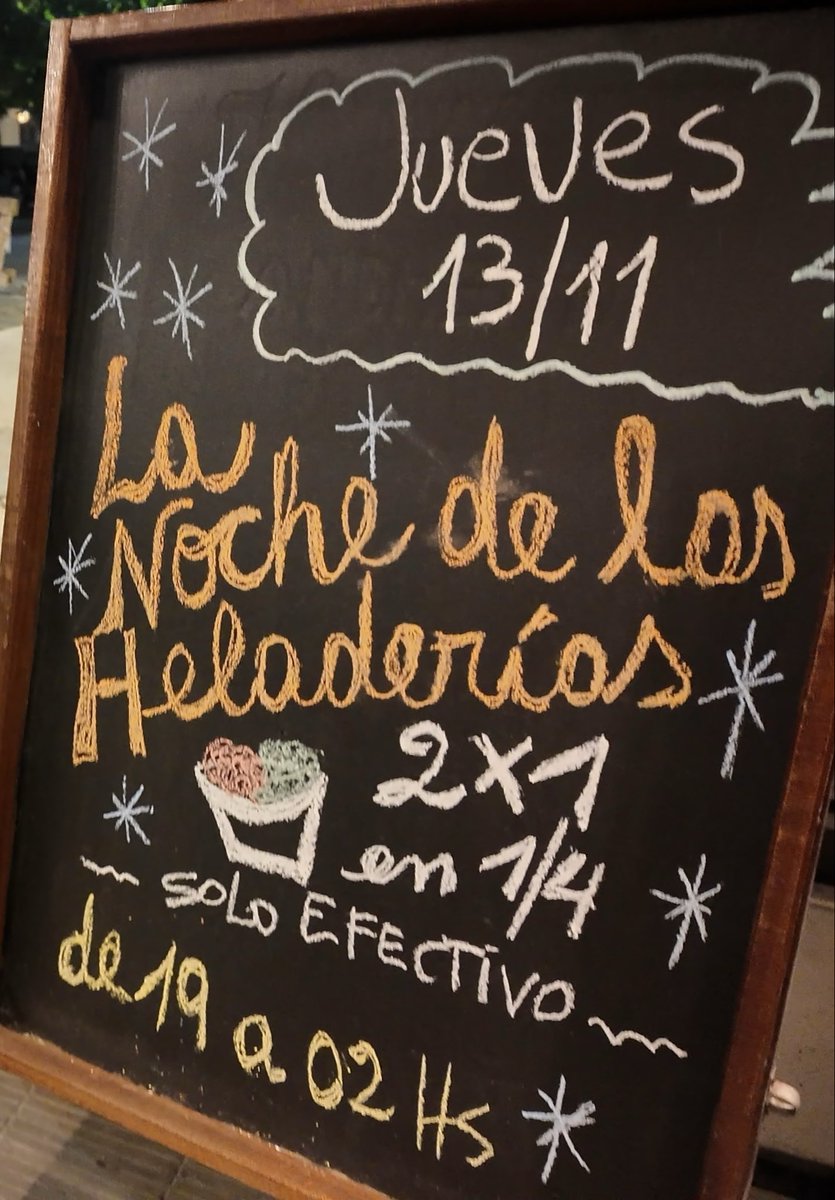 Jueves
13/11
La
Noche de las
Heladerías
2x1
en 1/4
SOLO EFECTIVO
de 19 a 02 Hs